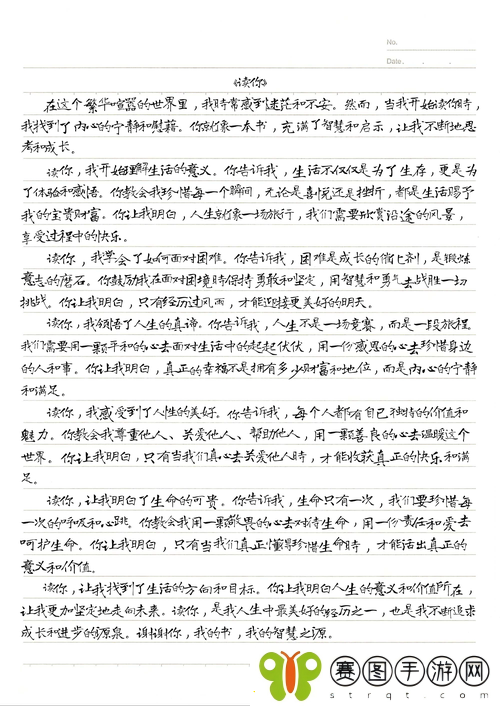 No.
Date . .
《读你》
在这个繁华喧嚣的世界里，我时常感到迷茫和不安。然而，当我开始读你时，
我找到了内心的宁静和慰藉。你就像一本书，充满了智慧和启示，让我不断地思
考和成长。
读你，我开始理解生活的意义。你告诉我，生活不仅仅是为了生存，更是为
了体验和感悟。你教会我珍惜每一个瞬间，无论是喜悦还是挫折，都是生活赐予
我的宝贵财富。你让我明白，人生就像一场旅行，我们需要欣赏沿途的风景，
享受过程中的快乐。
读你，我学会了如何面对困难。你告诉我，困难是成长的催化剂，是锻炼
意志的磨石。你鼓励我在面对困境时保持勇敢和坚定，用智慧和勇气去战胜一切
挑战。你让我明白，只有经历过风雨，才能迎接更美好的明天。
读你，我领悟了人生的真谛。你告诉我，人生不是一场竞赛，而是一段旅程。
我们需要用一颗平和的心去面对生活中的起起伏伏，用一份感恩的心去珍惜身边
的人和事。你让我明白，真正的幸福不是拥有多少财富和地位，而是内心的宁静
和满足。
读你，我感受到了人性的美好。你告诉我，每个人都有自己独特的价值和
魅力。你教会我尊重他人、关爱他人、帮助他人，用一颗善良的心去温暖这个
世界。你让我明白，只有当我们真心去关爱他人时，才能收获真正的快乐和满
足。
读你，让我明白了生命的可贵。你告诉我，生命只有一次，我们要珍惜每
一次的呼吸和心跳。你教会我用一颗敬畏的心去对待生命，用一份责任和爱去
呵护生命。你让我明白，只有当我们真正懂得珍惜生命时，才能活出真正的
意义和价值。
读你，让我找到了生活的方向和目标。你让我明白人生的意义和价值所在，
让我更加坚定地走向未来。读你，是我人生中最美好的经历之一，也是我不断追求
成长和进步的源泉。谢谢你，我的书，我的智慧之源。
赛图手游网
strqt.com